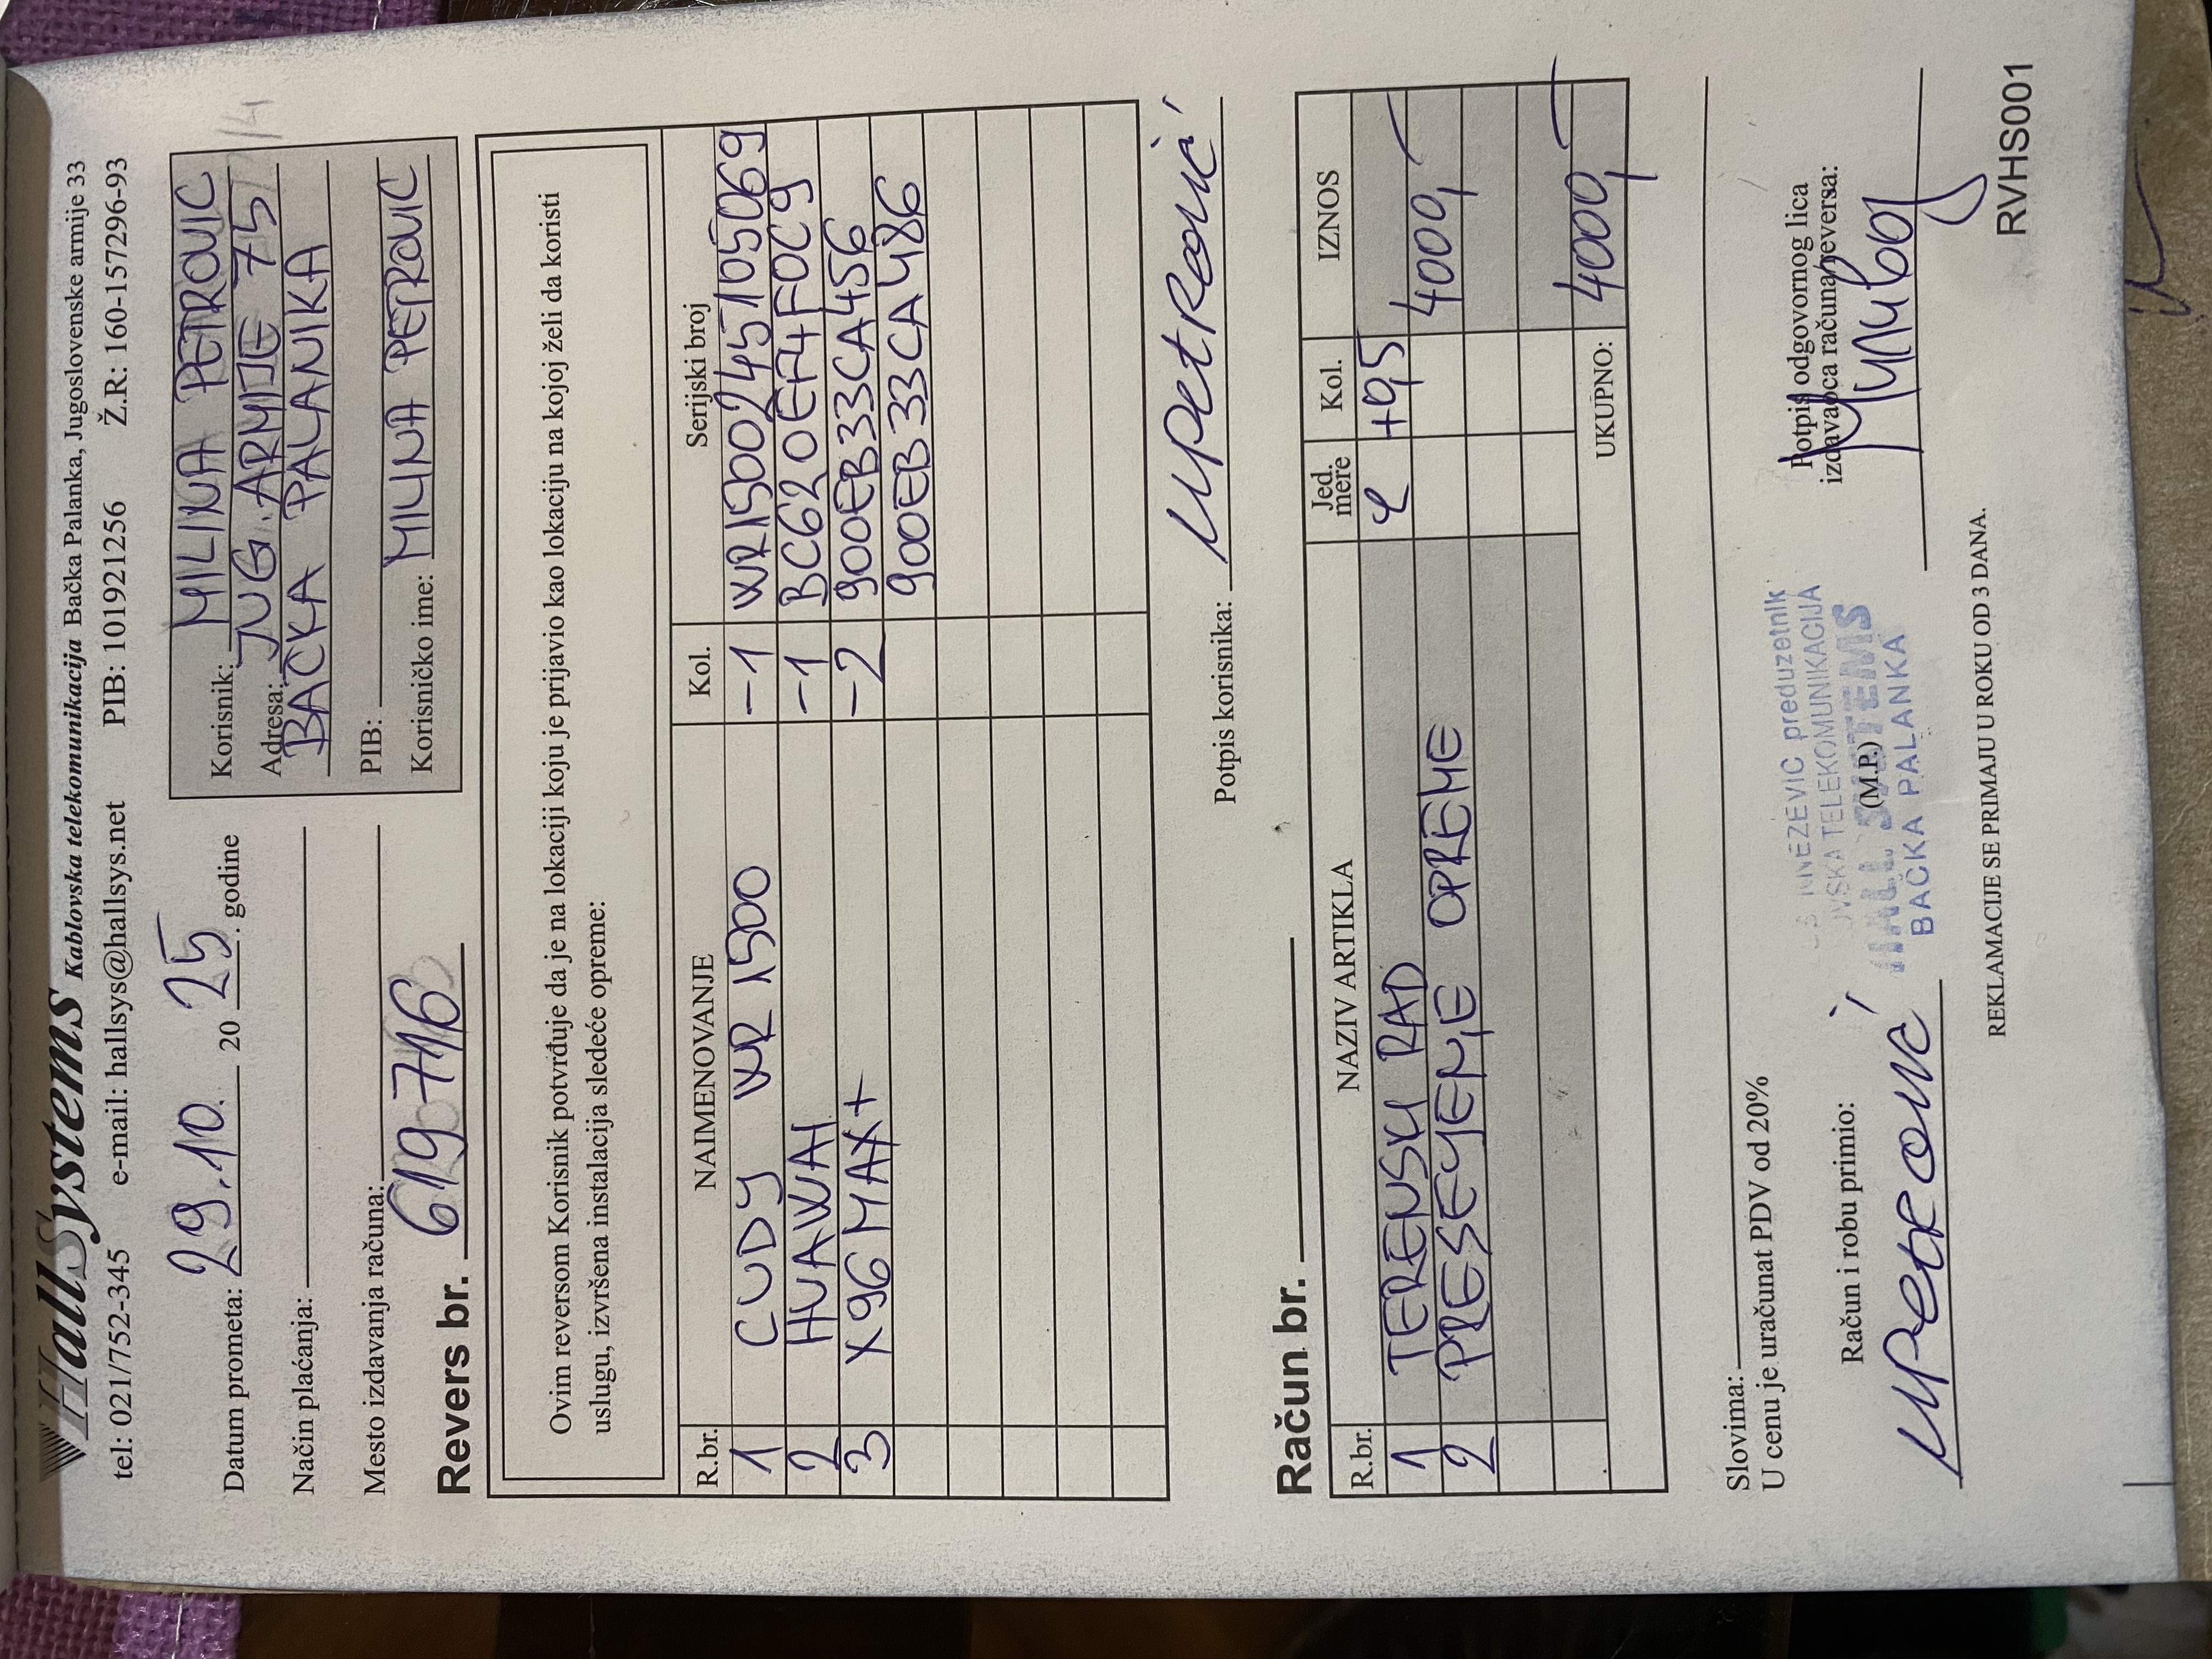 HallSystems Kablovska telekomunikacija Bačka Palanka, Jugoslovenske armije 33
tel: 021/752-345 e-mail: hallsys@hallsys.net PIB: 101921256 Ž.R: 160-157296-93
Datum prometa: 29.10. 20 25. godine
Način plaćanja:
Mesto izdavanja računa:
Revers br. 619716
Korisnik: MILINA PETROVIC
Adresa: JUG. ARMIJE 75
BACKA PALANKA
PIB:
Korisničko ime: MILINA PETROVIC
Ovim reversom Korisnik potvrđuje da je na lokaciji koju je prijavio kao lokaciju na kojoj želi da koristi
uslugu, izvršena instalacija sledeće opreme:
R.br. NAIMENOVANJE Kol. Serijski broj
1 CUDY WR 1500 -1 WR1500245105069
2 HUAWAI -1 BC620EF4F0C9
3 X96 MAX+ -2 900EB33CA456
900EB33CA486
Potpis korisnika: MPetrović
Račun br.
R.br. NAZIV ARTIKLA Jed. mere Kol. IZNOS
1 TERENSKI RAD č +0,5
2 PRESELJENJE OPREME 4000,
UKUPNO: 4000,
Slovima:
U cenu je uračunat PDV od 20%
Račun i robu primio:
MPetrović
(M.P.)
preduzetnik
TELEKOMUNIKACIJA
HALL SYSTEMS
BAČKA PALANKA
Potpis odgovornog lica
izdavaoca računa/reversa:
REKLAMACIJE SE PRIMAJU U ROKU OD 3 DANA.
RVHS001